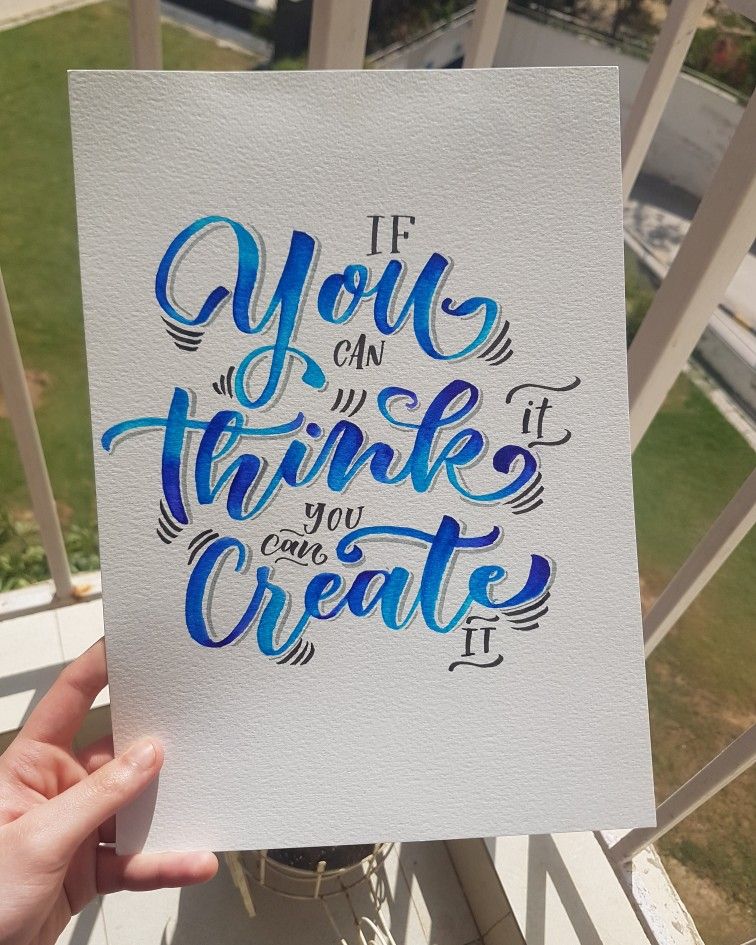 IF
You
CAN
think it
you
can
Create
IT